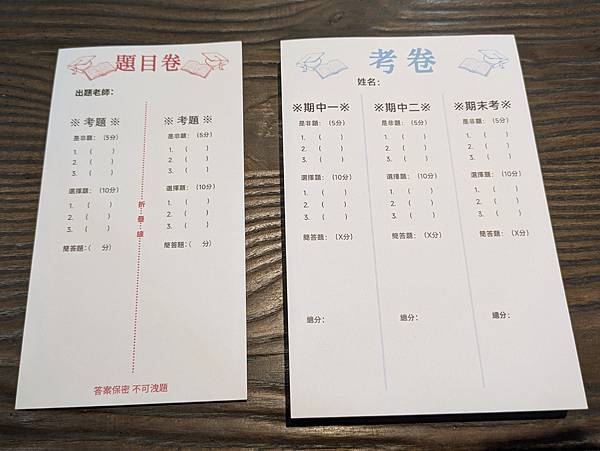 題目卷
出題老師：
※ 考題 ※
是非題： （5分）
1. （ ）
2. （ ）
3. （ ）
選擇題： （10分）
1. （ ）
2. （ ）
3. （ ）
簡答題：（ 分）
折疊線
※ 考題 ※
是非題： （5分）
1. （ ）
2. （ ）
3. （ ）
選擇題： （10分）
1. （ ）
2. （ ）
3. （ ）
簡答題：（ 分）
答案保密 不可洩題
考卷
姓名：
※期中一※
是非題： （5分）
1. （ ）
2. （ ）
3. （ ）
選擇題： （10分）
1. （ ）
2. （ ）
3. （ ）
簡答題： （X分）
總分：
※期中二※
是非題： （5分）
1. （ ）
2. （ ）
3. （ ）
選擇題： （10分）
1. （ ）
2. （ ）
3. （ ）
簡答題： （X分）
總分：
※期末考※
是非題： （5分）
1. （ ）
2. （ ）
3. （ ）
選擇題： （10分）
1. （ ）
2. （ ）
3. （ ）
簡答題： （X分）
總分：